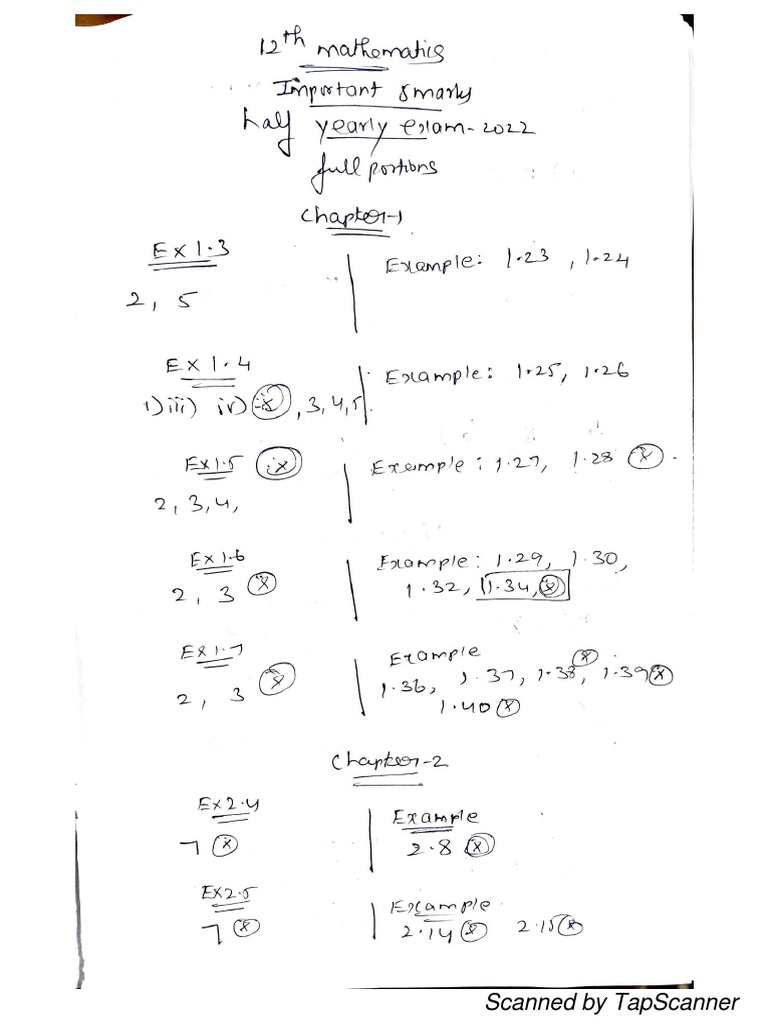 12th mathematics
Important 5 marks
half yearly exam - 2022
full portions
Chapter-1
Ex 1.3
Example: 1.23, 1.24
2, 5
Ex 1.4
Example: 1.25, 1.26
1) iii) iv) , 3, 4, 5
Ex 1.5
Example: 1.27, 1.28
2, 3, 4,
Ex 1.6
Example: 1.29, 1.30,
2, 3
1.32, 1.34,
Ex 1.7
Example
1.36, 1.37, 1.38, 1.39
2, 3
1.40
Chapter-2
Ex 2.4
Example
7
2.8
Ex 2.5
Example
7
2.14 2.15
Scanned by TapScanner